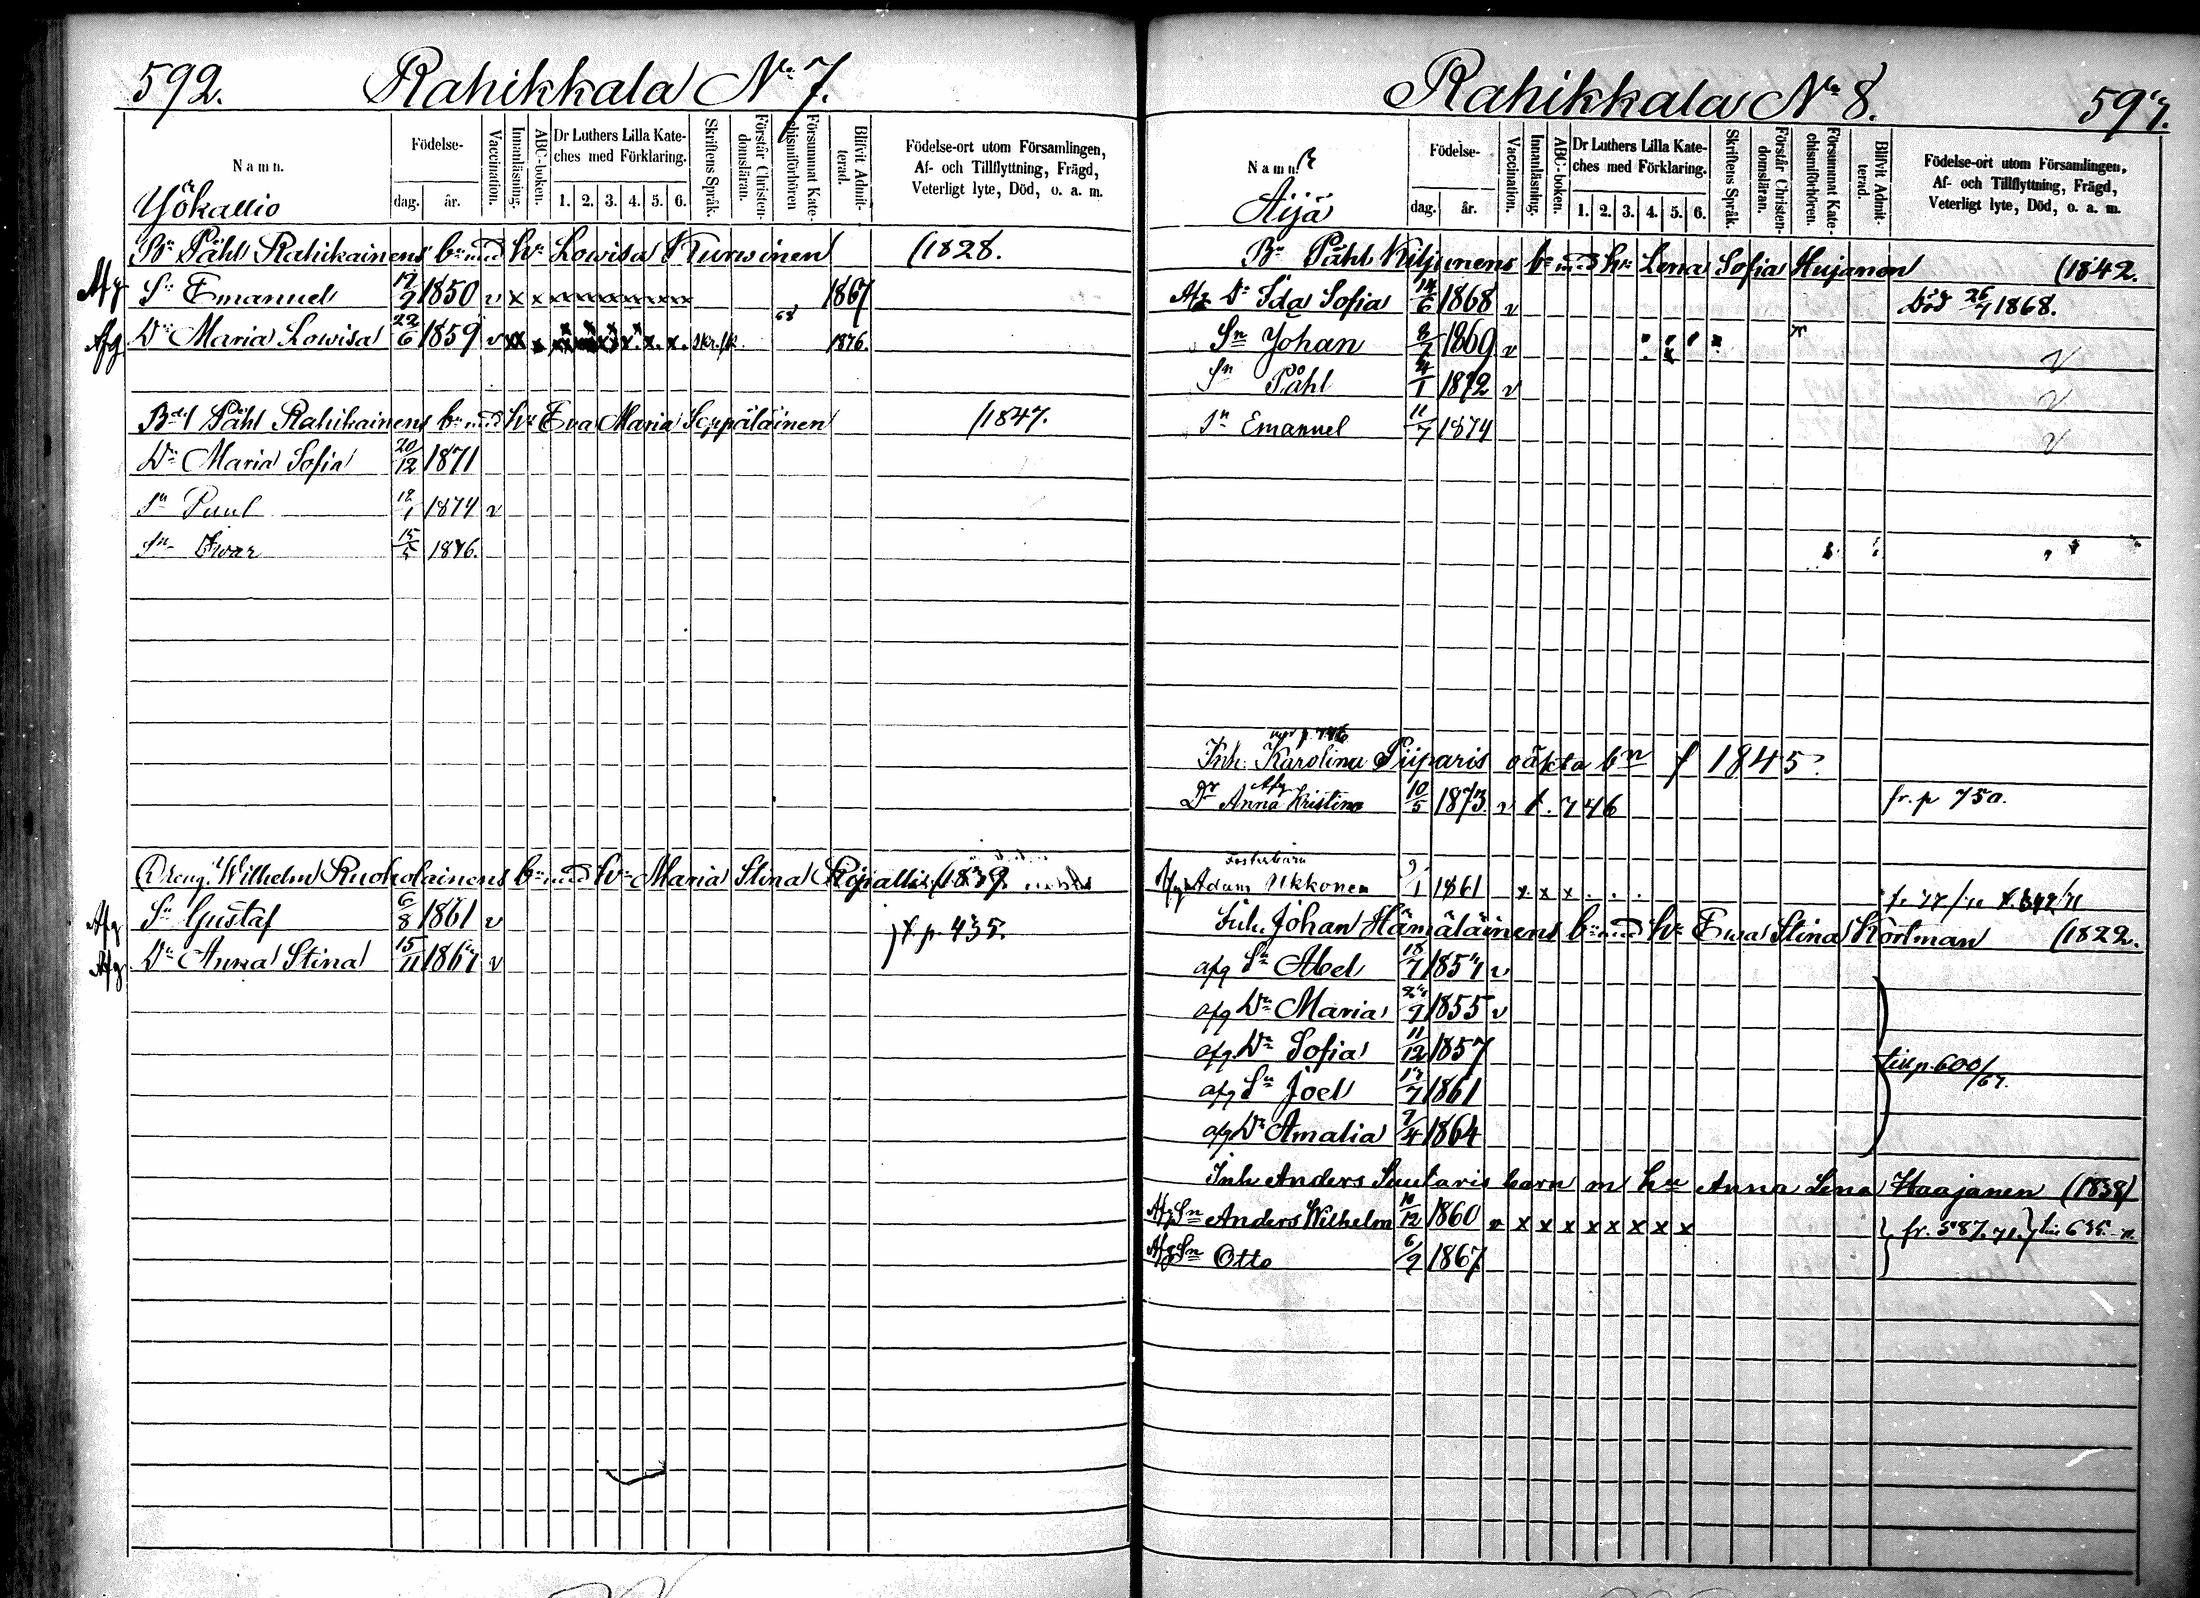 592. Rahikkala No 7.
Namn.
Födelse-
dag. år.
Vaccination.
Innanläsning.
ABC-boken.
Dr Luthers Lilla Kate-
ches med Förklaring.
1. 2. 3. 4. 5. 6.
Skriftens Språk.
Förstår Christen-
domsläran.
Försummat Kate-
chismiförhören
Blifvit Admit-
terad.
Födelse-ort utom Församlingen,
Af- och Tillflyttning, Frägd,
Veterligt lyte, Död, o. a. m.
Yökallio
Bn Påhl Rahikainens bn med hu Lowisa Kurwinen (1828.
Afg Sn Emanuel 1850 v x x 1867
Afg Dr Maria Lowisa 22/6 1859 v 68 1876.
Påhl Rahikainens bn med hu Eva Maria Seppäläinen (1847.
Dr Maria Sofia 20/12 1871
Sn Paul 1874 v
Sn Ivar 15/5 1876.
Dreng. Wilhelm Ruokolainens bn med hu Maria Stina
Afg Sn Gustaf 6/8 1861 v
} t. p. 435.
Afg Dr Anna Stina 15/11 1867 v
Rahikkala No 8. 597.
Namn.
Födelse-
dag. år.
Vaccination.
Innanläsning.
ABC-boken.
Dr Luthers Lilla Kate-
ches med Förklaring.
1. 2. 3. 4. 5. 6.
Skriftens Språk.
Förstår Christen-
domsläran.
Försummat Kate-
chismiförhören.
Blifvit Admit-
terad.
Födelse-ort utom Församlingen,
Af- och Tillflyttning, Frägd,
Veterligt lyte, Död, o. a. m.
Äijä
Bn Påhl Kiljunens bn med hu Lena Sofia Hujanen (1842.
Afg Dr Ida Sofia 14/6 1868 v död 26/7 1868.
Sn Johan 1869 v v
Sn Påhl 4/1 1872 v v
Sn Emanuel 11/7 1874 v
Inh. Karolina Piiparis oäkta bn f 1845.
Afg
Dr Anna Kristina 10/5 1873 v t. 746 fr. p 750.
Fosterbarn
Afg Adam Ukkonen 9/1 1861 x x x
Inh. Johan Hämäläinens bn med hu Ewa Stina Körlman (1822.
afg Sn Abel 18/7 1854 v
afg Dr Maria 1855 v
afg. Dr Sofia 11/12 1857
till p. 600/67.
afg Sn Joel 17/7 1861
afg Dr Amalia 2/4 1864
Inh Anders Suutaris barn m hu Anna Lena Haajanen (1838)
Afg Sn Anders Wilhelm 10/12 1860 v x x x x x x x x fr. 587. 71.
Afg Sn Otto 6/2 1867